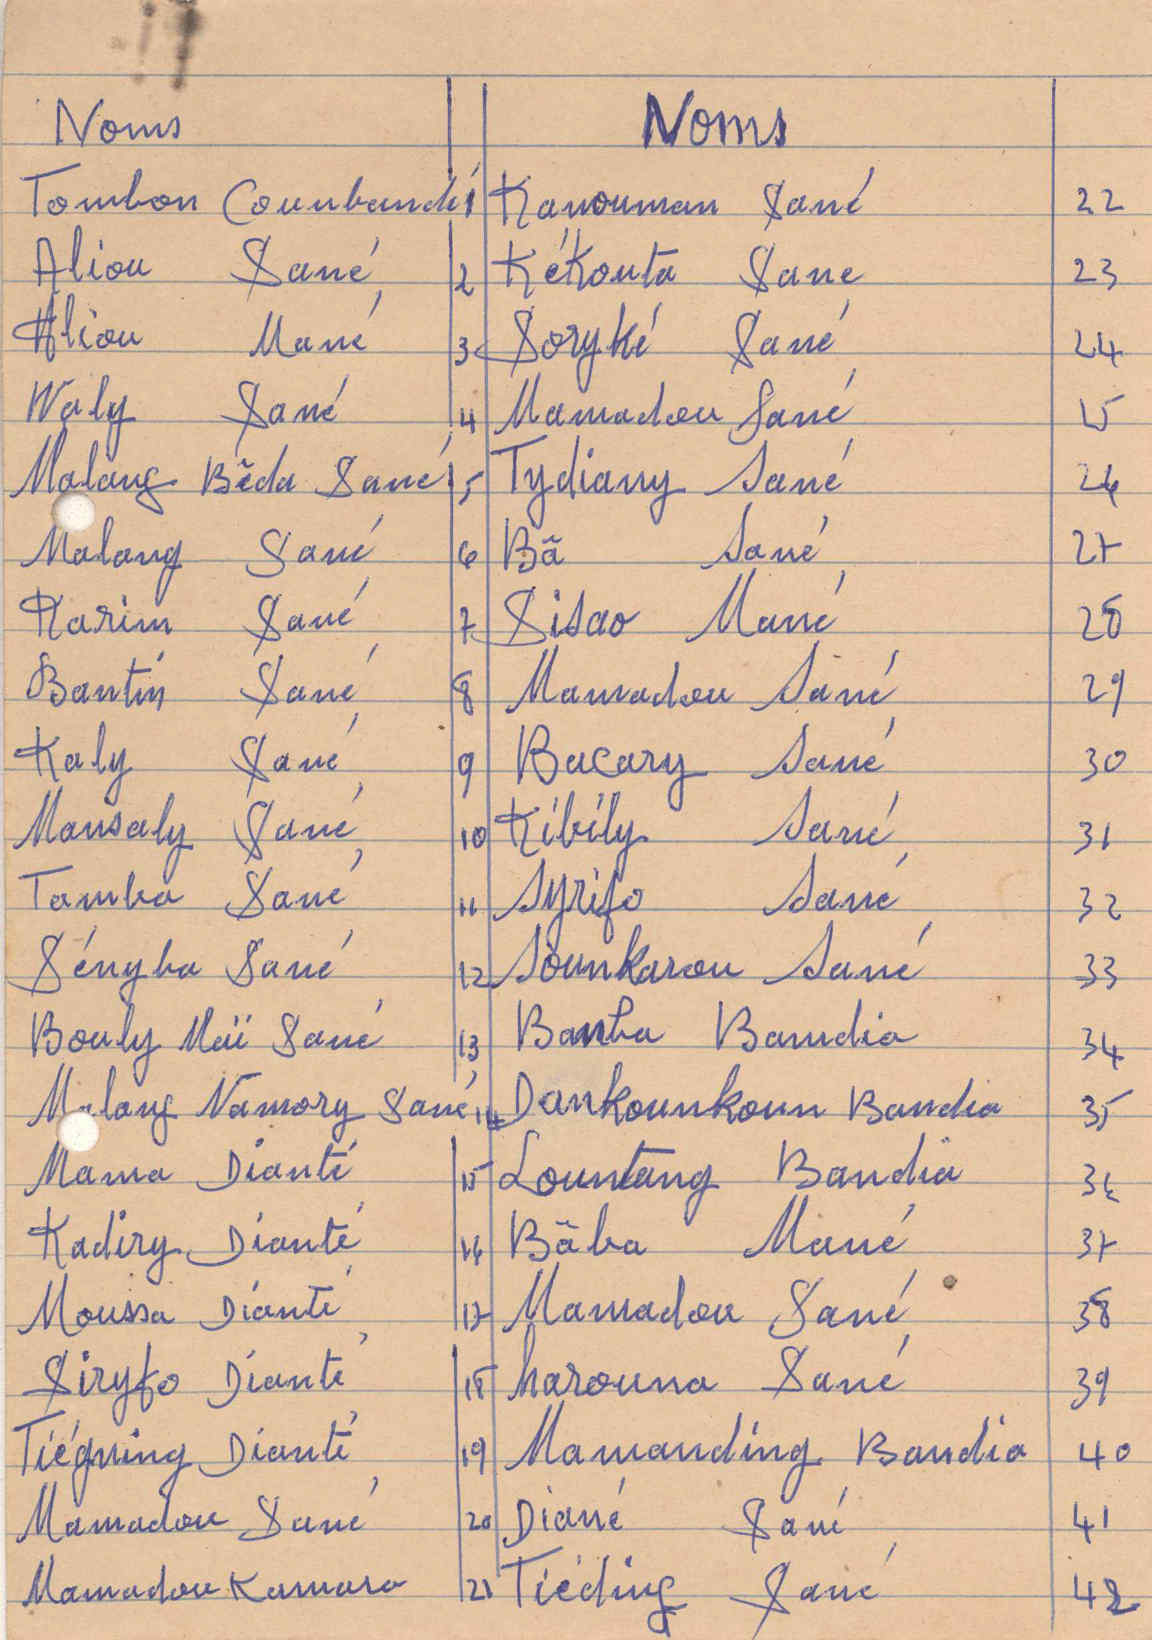 Noms Noms
Tombon Counbandi 1 Kanouman Sané 22
Aliou Sané 2 Kékouta Sane 23
Aliou Mané 3 Soryké Sané 24
Waly Sané 4 Mamadou Sané 25
Malang Bãda Sané 5 Tydiany Sané 26
Malang Sané 6 Bã Sané 27
Karim Sané 7 Sisao Mané 28
Bantin Sané 8 Mamadou Sané 29
Kaly Sané 9 Bacary Sané 30
Mansaly Sané 10 Kibily Sané 31
Tamba Sané 11 Syrifo Sané 32
Sényba Sané 12 Sounkarou Sané 33
Bouly Maï Sané 13 Banba Bamdia 34
Malang Namory Sané 14 Dankounkoun Bandia 35
Mama Dianté 15 Lountang Bandia 36
Kadiry Dianté 16 Bãba Mané 37
Moussa Dianté 17 Mamadou Sané 38
Siryfo Dianté 18 harouna Sané 39
Tiégning Dianté 19 Mamanding Bandia 40
Mamadou Sané 20 Diané Sané 41
Mamadou Kamara 21 Tiéding Sané 42